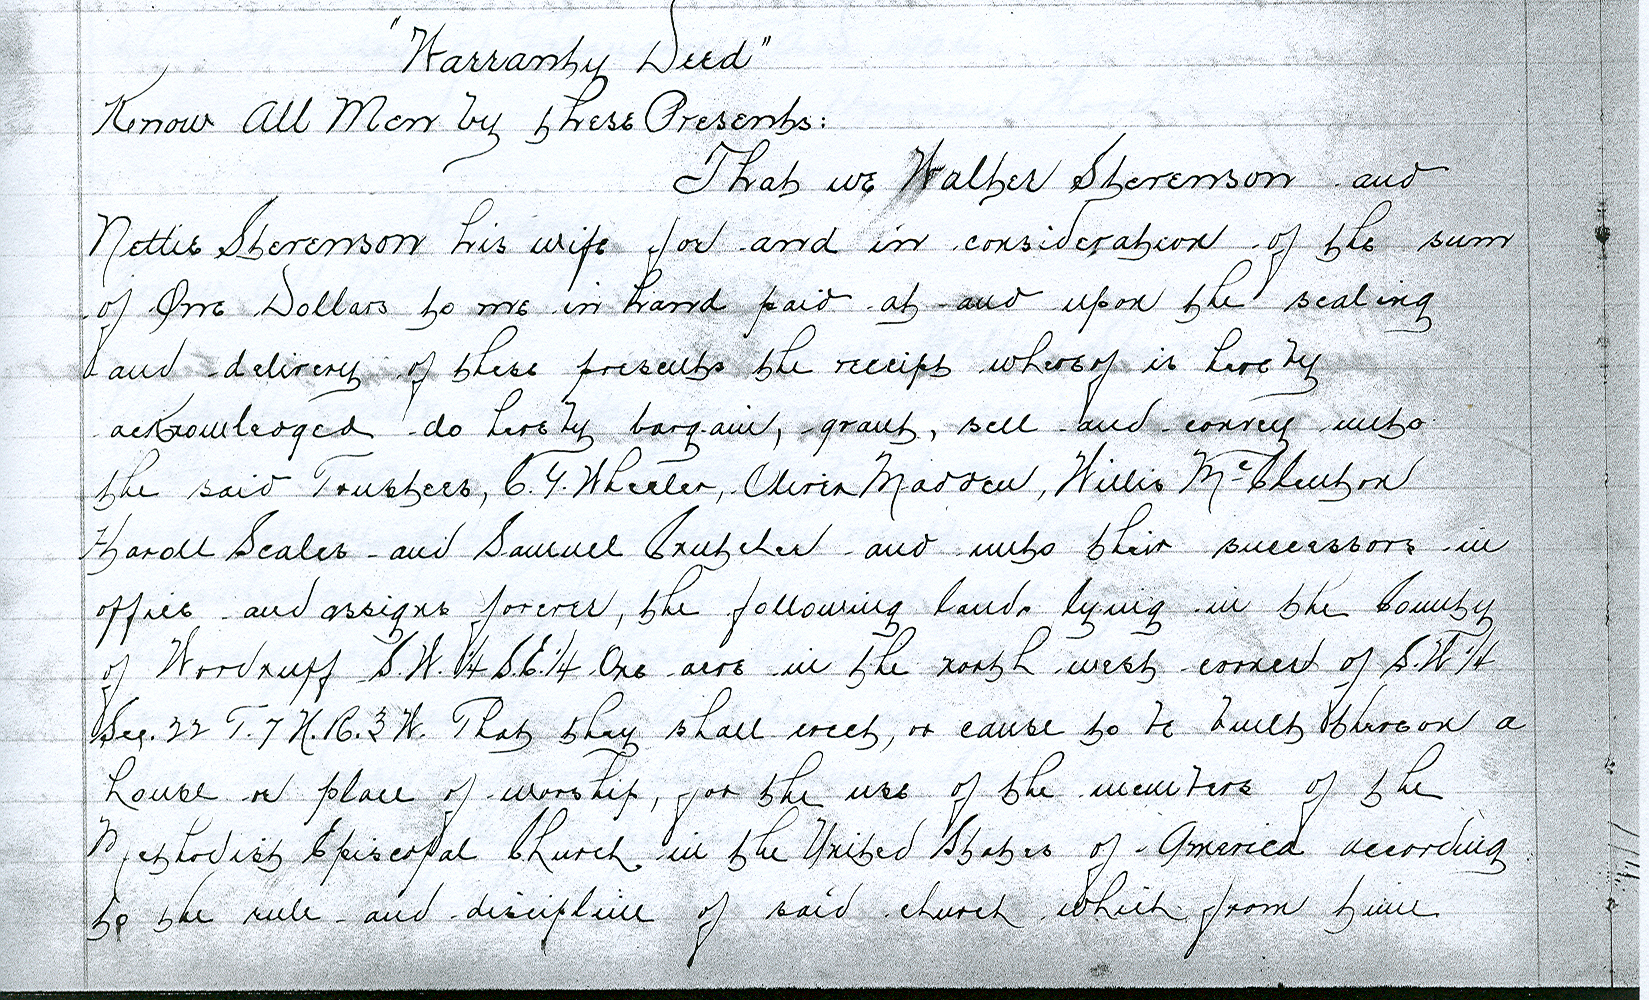 "Warranty Deed"
Know All Men by these Presents:
That we Walter Stevenson and
Nettie Stevenson his wife for and in consideration of the sum
of One Dollars to me in hand paid at and upon the sealing
and delivery of these presents the receipt whereof is hereby
acknowledged do hereby bargain, grant, sell and convey unto
the said Trustees, C. Y. Wheeler, Madden, Willis McClenton
Scales and Samuel Crutcher and unto their successors in
office and assigns forever, the following land lying in the County
of Woodruff S.W. 1/4 S.E. 1/4 One acre in the north west corner of S.W 1/4
Sec. 22 T. 7 N. R. 3 W. That they shall erect, or cause to be built thereon a
house or place of worship, for the use of the members of the
Methodist Episcopal Church in the United States of America according
to the rule and discipline of said church which from time